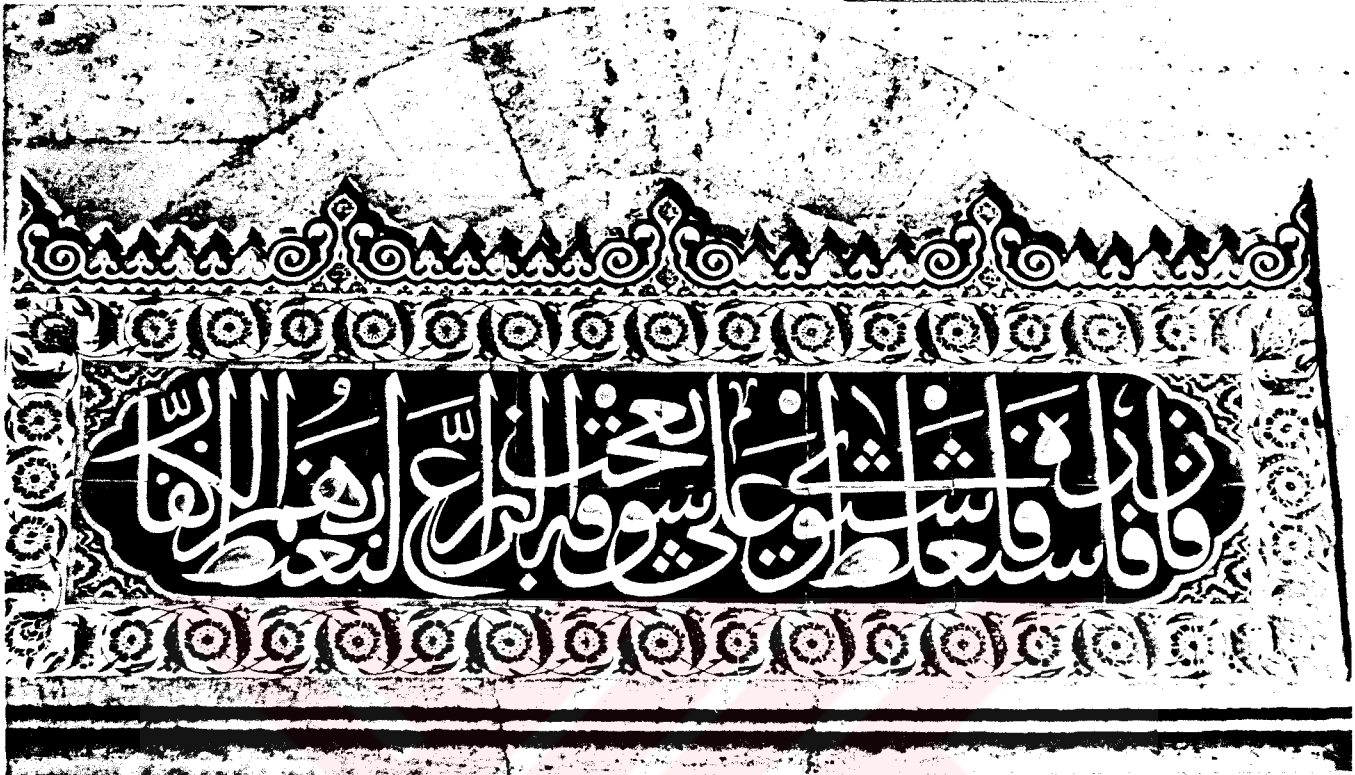 فازره فاستغلظ فاستوى على سوقه يعجب الزراع ليغيظ بهم الكفار